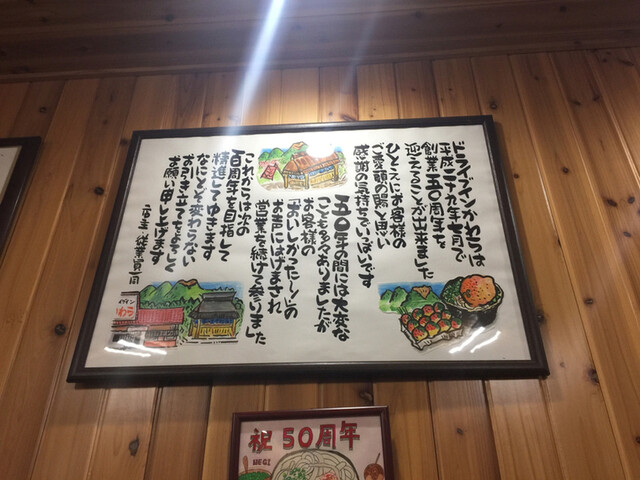 ドライブインかわらは
平成二十九年七月で
創業五〇周年を
迎えることが出来ました
ひとえにお客様の
ご愛顧の賜と思い
感謝の気持ちでいっぱいです
五〇年の間には大変な
ことも多々ありましたが
お客様の
「おいしかったー!」の
お声にはげまされ
営業を続けて参りました
これからは次の
百周年を目指して
精進してゆきます
なにとぞ変わらない
お引き立てをよろしく
お願い申し上げます
店主 従業員一同
イブイン
わら
祝50周年
NEGI